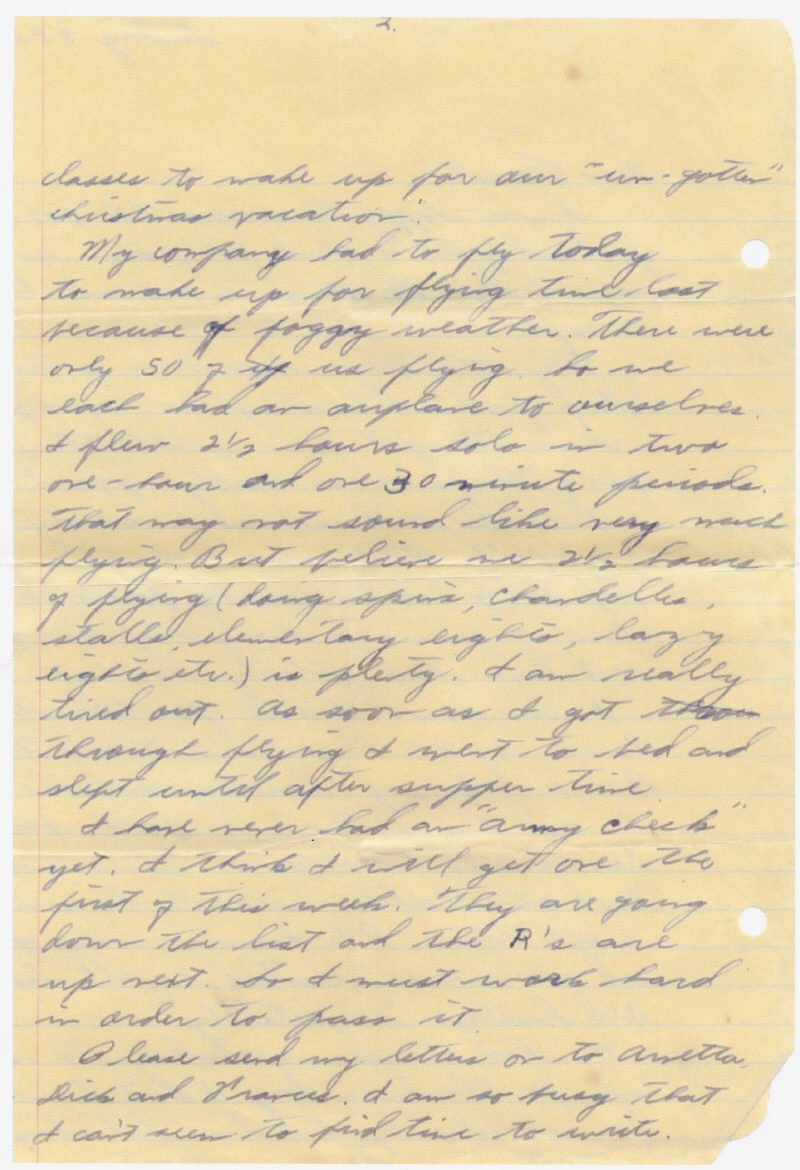 2.
classes to make up for our "un-gotten"
christmas vacation".
My company had to fly today
to make up for flying time lost
because of foggy weather. There were
only 50 of us flying. So we
each had an airplane to ourselves.
I flew 2 1/2 hours solo in two
one-hour and one 30 minute periods.
That may not sound like very much
flying. But believe me 2 1/2 hours
of flying (doing spins, chandelles,
stalls, elementary eights, lazy
eights etc.) is plenty. I am really
tired out. As soon as I got
through flying I went to bed and
slept until after supper time.
I have never had an "army check"
yet. I think I will get one the
first of this week. They are going
down the list and the R's are
up next. So I must work hard
in order to pass it.
Please send my letters on to Arretta,
Dick and Frances. I am so busy that
I can't seem to find time to write.